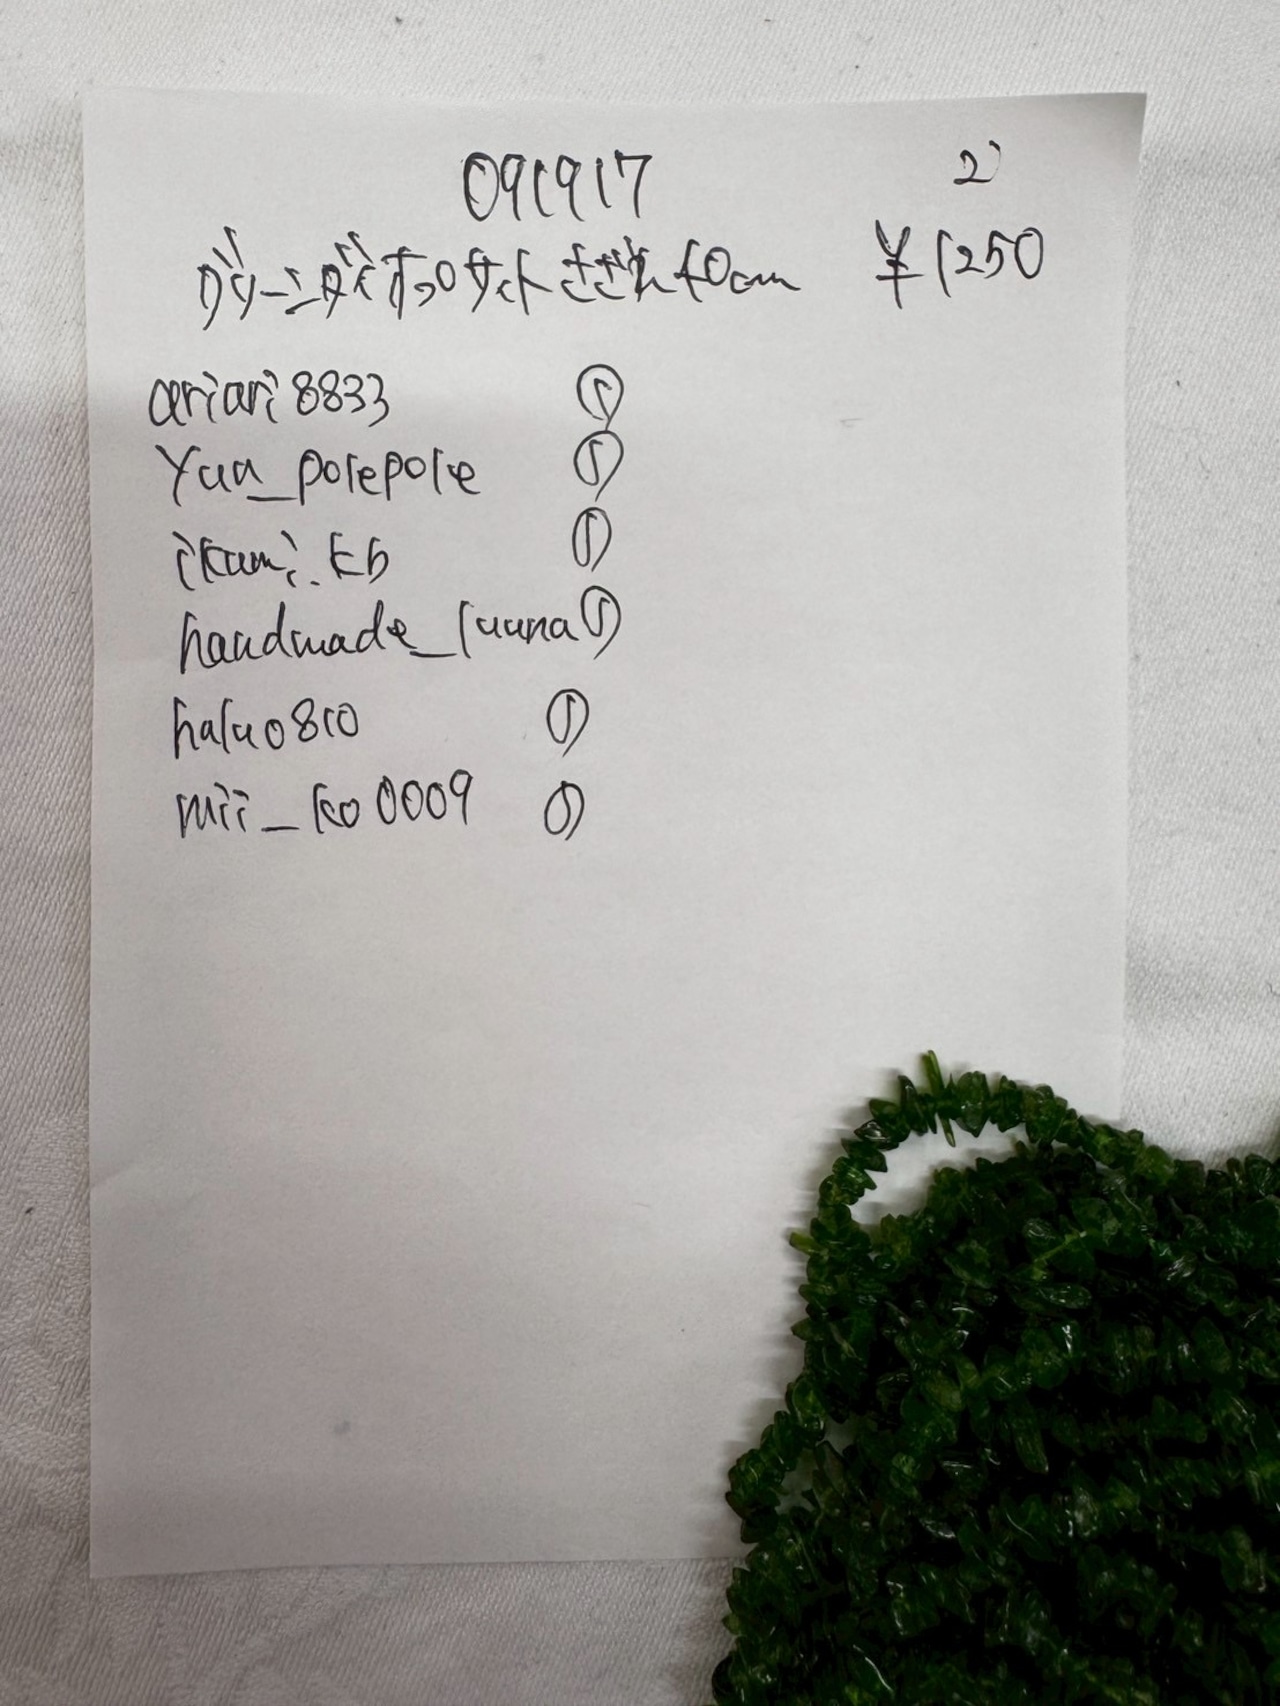 091917 2
グリーンダイオプサイトさざれ40cm ¥1250
ariari8833 ①
Yuu_polepole ①
ikumi.kb ①
handmade_luuna ①
halu0810 ①
mii_ko0009 ①